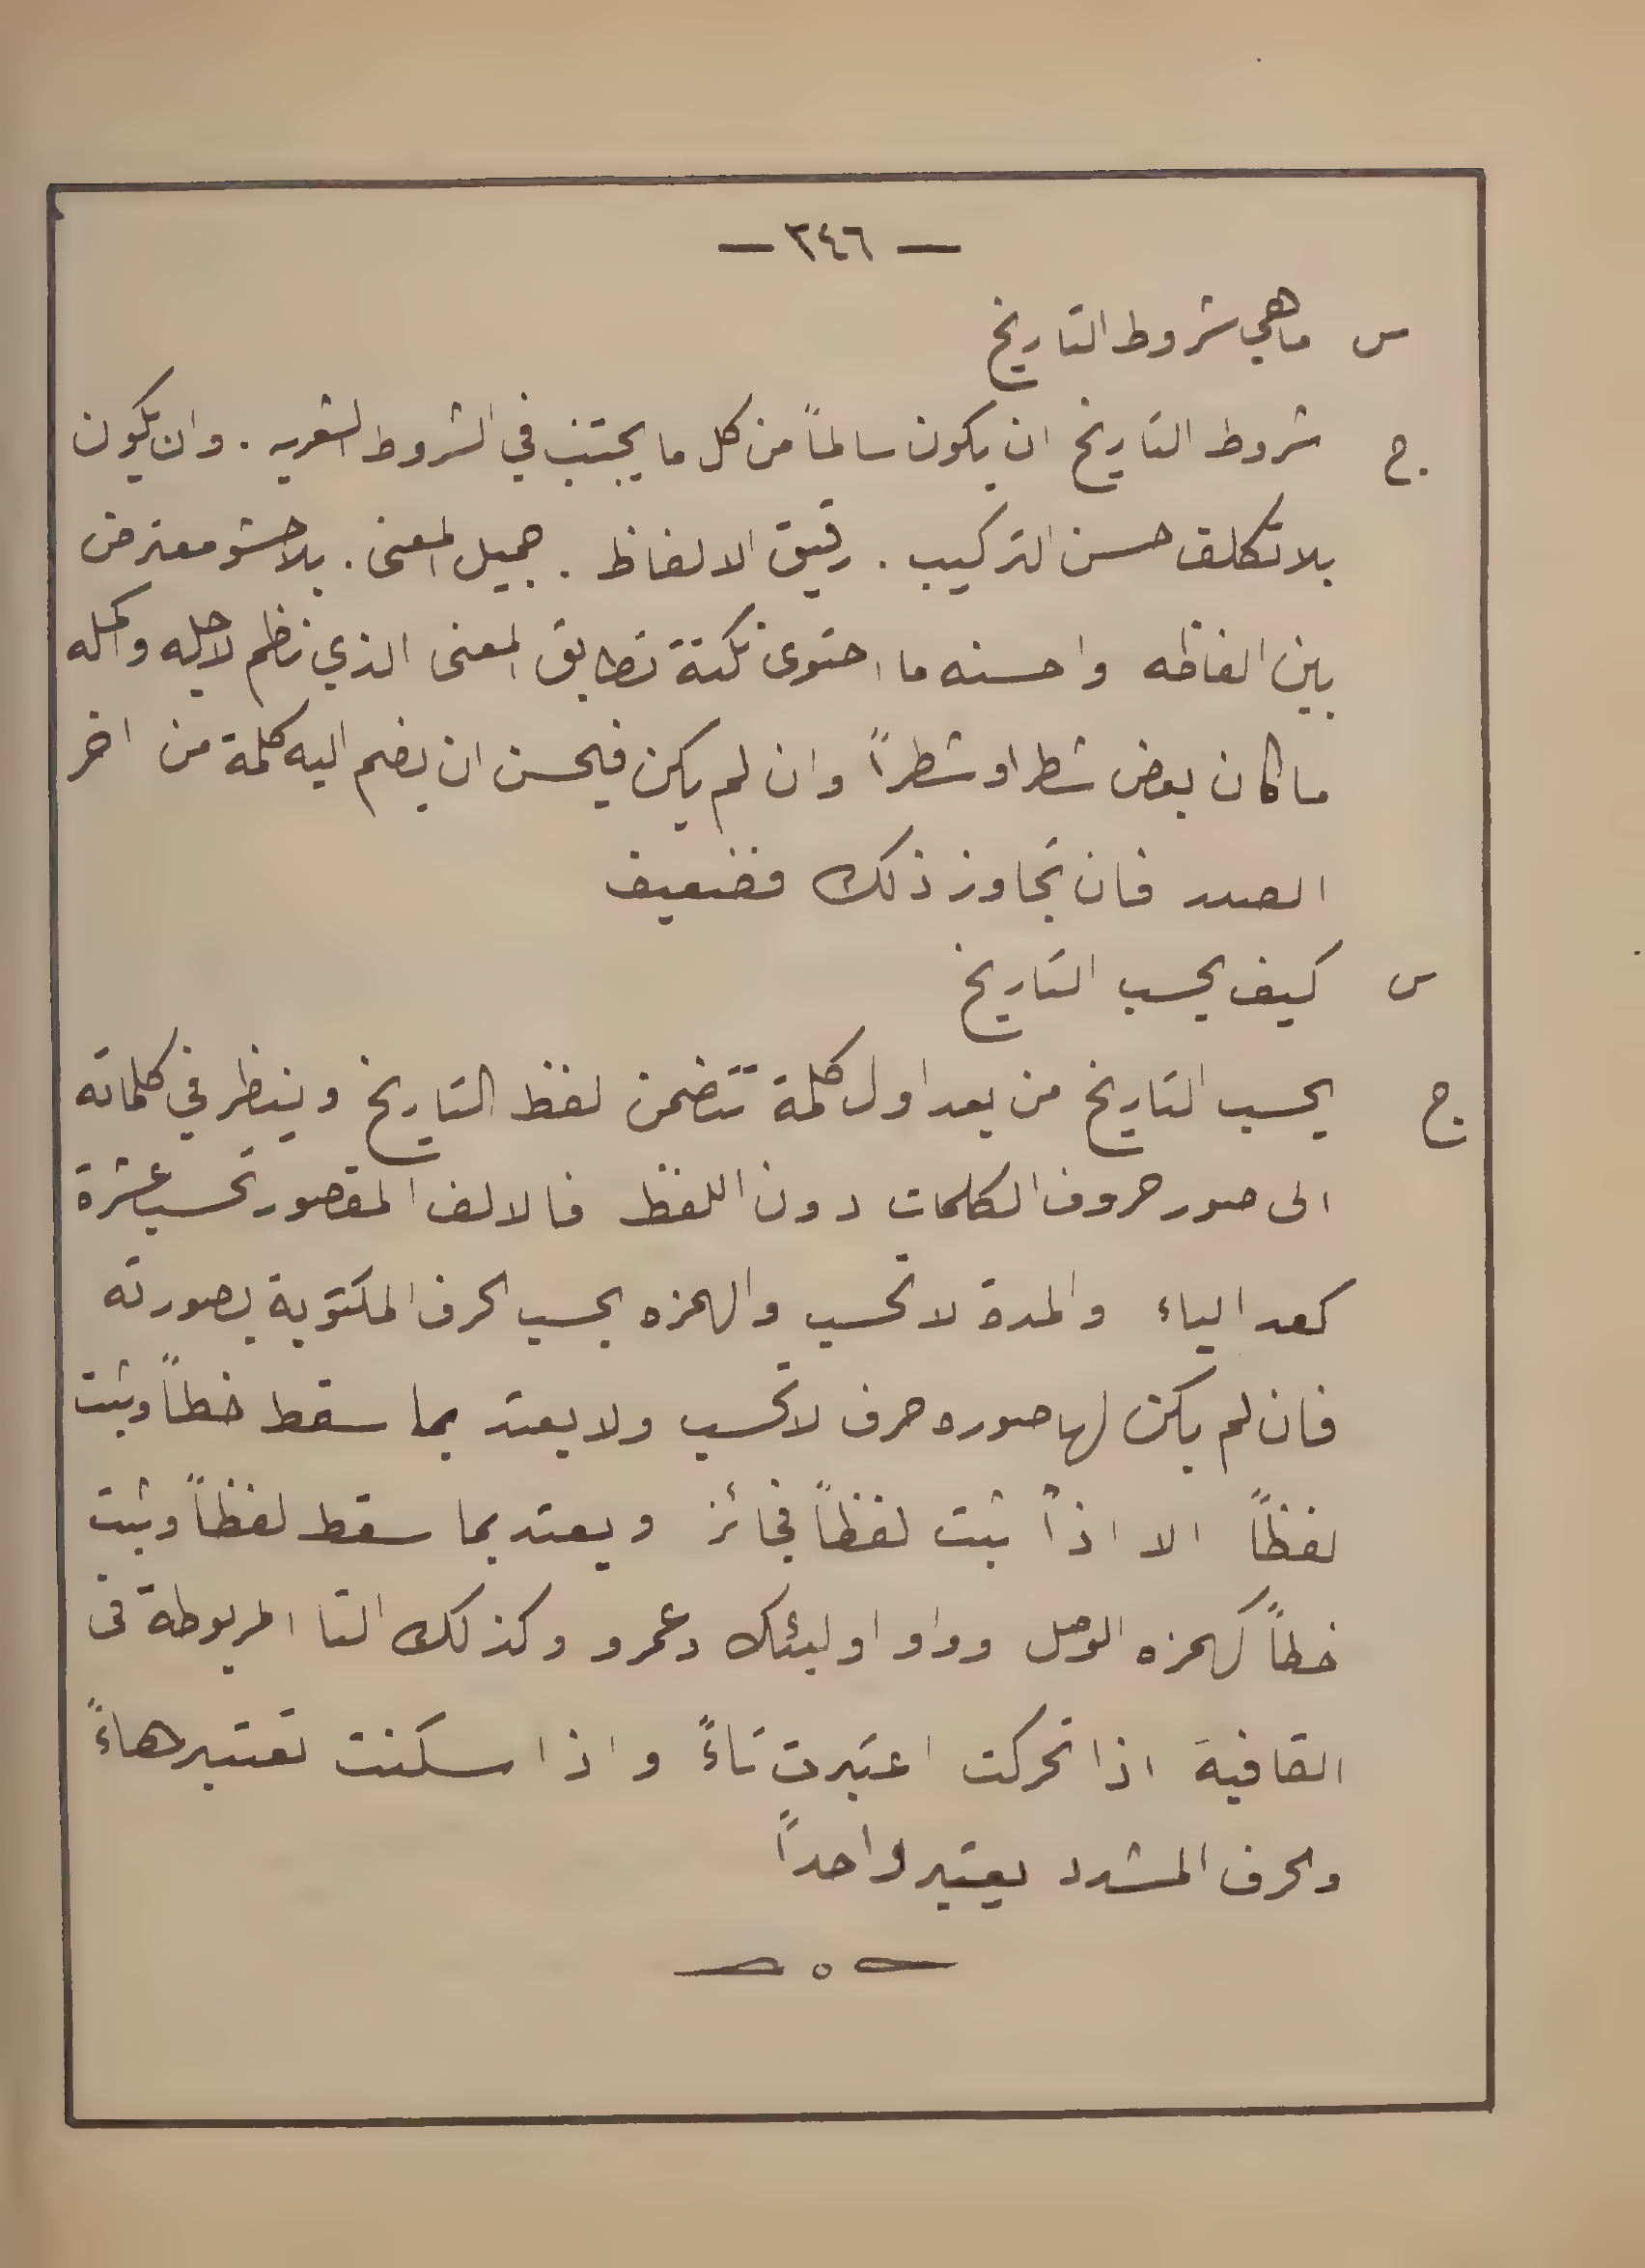 — ٣٤٦ —
س ماهي شروط التاريخ
ج شروط التاريخ ان يكون سالماً من كل ما يجتنب في الشروط الشعريه . وان يكون
بلا تكلف حسن التركيب . رقيق الالفاظ . جميل المعنى . بلا حشو معترض
بين الفاظه واحسنه ما احتوى نكتة تطابق المعنى الذي نظم لاجله واكمله
ما كان بعض شطر او شطراً وان لم يكن فيحسن ان يضم اليه كلمة من اخر
الصدر فان تجاوز ذلك فضعيف
س كيف يحسب التاريخ
ج يحسب التاريخ من بعد اول كلمة تتضمن لفظ التاريخ وينظر في كلماته
الى صور حروف الكلمات دون اللفظ فالالف المقصور تحسب عشرة
كعد الياء والمدة لا تحسب والهمزه بحسب الحرف المكتوبة بصورته
فان لم يكن لها صوره حرف لا تحسب ولا يعتد بما سقط خطاً وثبت
لفظاً الا اذا ثبت لفظاً فجائز ويعتد بما سقط لفظاً وثبت
خطاً كهمزه الوصل وواو اوليئك وعمرو وكذلك التا المربوطة فى
القافية اذا تحركت اعتبرت تاءً واذا سكنت تعتبر هاءً
والحرف المشدد يعتبر واحداً